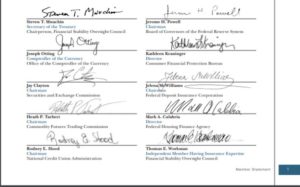 Steven T. Mnuchin
Secretary of the Treasury
Chairperson, Financial Stability Oversight Council
Jerome H. Powell
Chairman
Board of Governors of the Federal Reserve System
Joseph Otting
Comptroller of the Currency
Office of the Comptroller of the Currency
Kathleen Kraninger
Director
Consumer Financial Protection Bureau
Jay Clayton
Chairman
Securities and Exchange Commission
Jelena McWilliams
Chairman
Federal Deposit Insurance Corporation
Heath P. Tarbert
Chairman
Commodity Futures Trading Commission
Mark A. Calabria
Director
Federal Housing Finance Agency
Rodney E. Hood
Chairman
National Credit Union Administration
Thomas E. Workman
Independent Member Having Insurance Expertise
Financial Stability Oversight Council
Member Statement